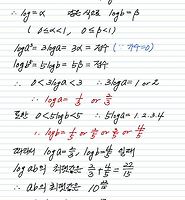 ∴ log a = α 같은 식으로 log b = β
( 0≤α<1 , 0≤β<1 )
log a³ = 3log a = 3α = 정수 (∵ 가수=0)
log b⁵ = 5log b = 5β = 정수
∴ 0<3log a<3 ∴ 3log a = 1 or 2
∴ log a = 1/3 or 2/3
또한 0<5log b<5 ∴ 5log b = 1. 2. 3. 4
∴ log b = 1/5 or 2/5 or 3/5 or 4/5
따라서 log a = 2/3, log b = 4/5 일때
log ab의 최댓값은 2/3 + 4/5 = 22/15
∴ ab의 최댓값은 10^(22/15)